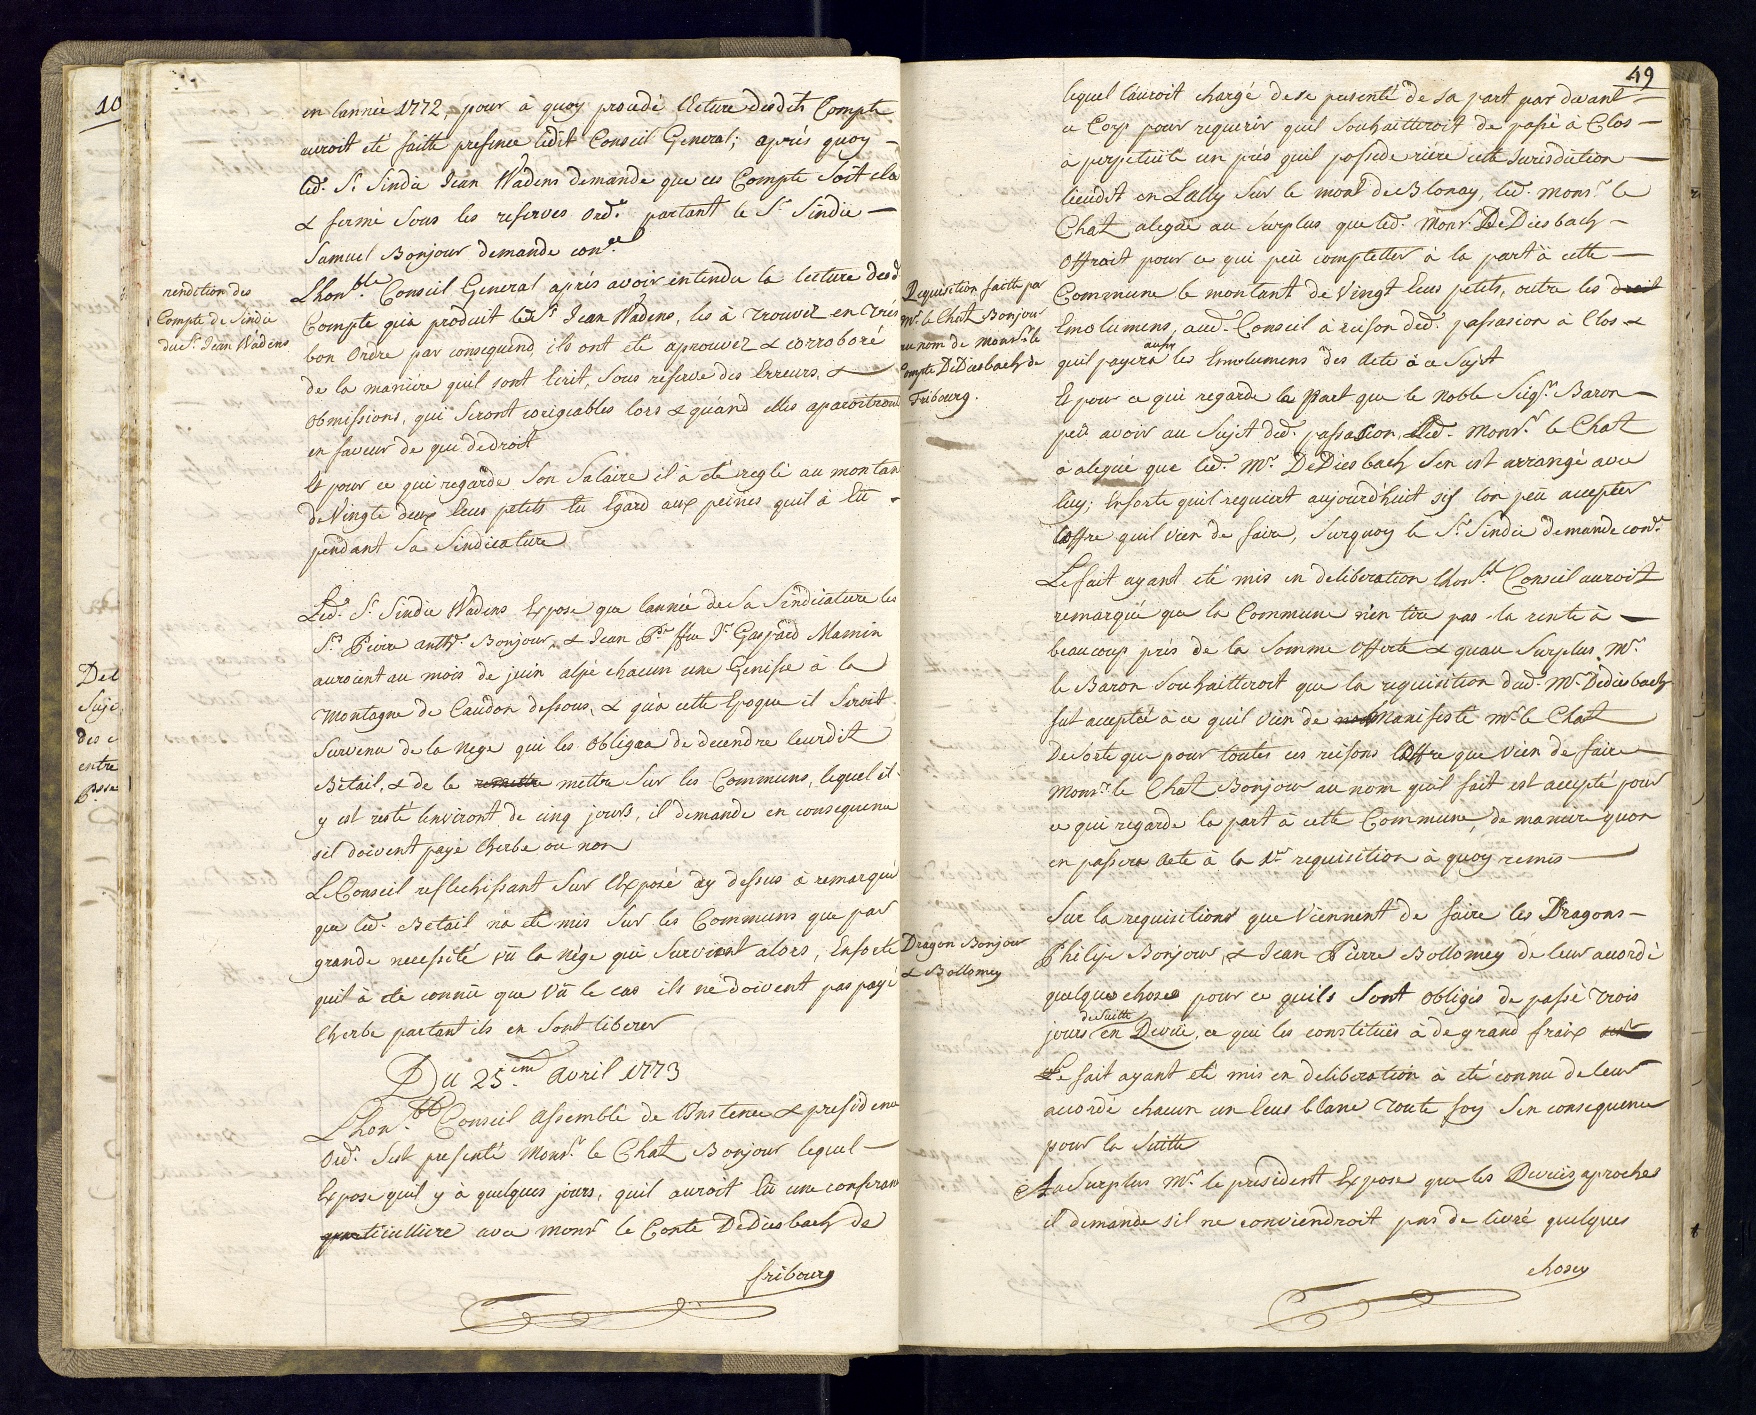 10
Det
Sujè
des c
entre
en lannée 1772, pour à quoy procedé lEcture desdits Compte
auroit été faitte presence ledit Conseil General; aprés quoy
led. Sr. Sindic Jean Wadens demande que ces Compte Soit clo
& fermé Sous les reserves Ord.e partant le Sr. Sindic
Samuel Bonjour demande con.ce
rendition des
Compte de Sindic
du Sr. Jean Wadens
Lhon.ble Conseil General aprés avoir entendu la lecture desd.
Compte qu'a produit led. Sr. Jean Wadens, les à trouvez en tres
bon Ordre par consequend ils ont été aprouvez & corroboré
de la maniere quil sont Ecrit, Sous reserve des Erreurs, &
Obmissions, qui Seront corigeables lors & quand elles aparoitront
en faveur de qui de droit
Et pour ce qui regarde Son Salaire il à été reglé au montan
de Vingte deux Ecus petits Eu Egard aux peines quil à Eü
pendant Sa Sindicature
Led. Sr. Sindic Wadens Expose que lannée de Sa Sindicature les
Srs. Pierre anth.e Bonjour, & Jean P.re ffeu Jn. Gaspard Mamin
auroient au mois de juin alpé chacun une Genisse à la
Montagne de Caudon dessous, & qu'a cette Epoque il Seroit
Survenu de la Nege qui les Obligea de decendre leurdit
Bétail, & de le remettre mettre Sur les Communs, lequel il
y est resté lenviront de cinq jours, il demande en consequence
sil doivent payé lherbe ou non
Le Conseil reflechissant Sur lExposé cy dessus à remarqué
que led. Betail n'a été mis Sur les Communs que par
grande necessité vü la nége qui Survient alors, Ensorte
quil à été connü que vü le cas ils ne doivent pas payé
lherbe partant ils en Sont liberer
Du 25.eme Avril 1773
Lhon.ble Conseil Assemblé de lInstence & presidence
Ord.e Sest presenté Monsr. le Chat. Bonjour lequel
Expose quil y à quelques jours, quil auroit Eü une conferance
particulliere avec Monsr. le Conte DeDiesbach de
fribourg
49
lequel lauroit chargé de se presenté de Sa part par devant
ce Corp pour requerir quil Souhaitteroit de passé à Clos
à perpetuité un prés quil possede riere cette Jurisdiction
lieudit en Lally Sur le mont de Blonay, led. Monsr. le
Chat. alegue au Surplus que led. Monsr. DeDiesbach
Offroit pour ce qui peu completter à la part à cette
Requisition faitte par
Mr. le Chat. Bonjour
au nom de Monsr. le
Compte DeDiesbach de
Fribourg.
Commune le montant de Vingt Ecus petits, outre les droit
Emolumens, aud. Conseil à reison de d. passasion à Clos &
quil payera aussy les Emolumens des Acte à ce Sujet
Et pour ce qui regarde la part que le Noble Seig.r Baron
peu avoir au Sujet de d. passasion, led. Monsr. le Chat.
à alegué que led. Mr. DeDiesbach Sen est arrangé avec
luy; Ensorte quil requiert aujourd'huit sis lon peu accepter
loffre quil vien de faire, Surquoy le Sr. Sindic demande con.ce
Le fait ayant été mis en deliberation lhon.ble Conseil auroit
remarqué que la Commune n'en tire pas la rente à
beaucoup prés de la Somme Offerte & quau Surplus Mr.
le Baron Souhaitteroit que la requisition dud. Mr. Dediesbach
fut acceptée à ce quil vien de Manifesté Mr. le Chat.
De sorte que pour toutes ces reisons loffre que vien de faire
Monsr. le Chat. Bonjour au nom quil fait est accepté pour
ce qui regarde la part à cette Commune, de maniere quon
en passera Acte à la 1re. requisition à quoy remis
Dragon Bonjour
& Bollomey
Sur la requisition que Viennent de faire les Dragons
Philipe Bonjour, & Jean Pierre Bollomey de leur accordé
quelques choses pour ce quils Sont Obligés de passé trois
jours de Suitte en Revüe, ce qui les constitües à de grand fraix
Le fait ayant été mis en deliberation à été connu de leur
accordé chacun un Ecus blanc toute foy Sen consequence
pour la Suitte
Au Surplus Mr. le president Expose que les Revües aproches
il demande sil ne conviendroit pas de livré quelques
choses